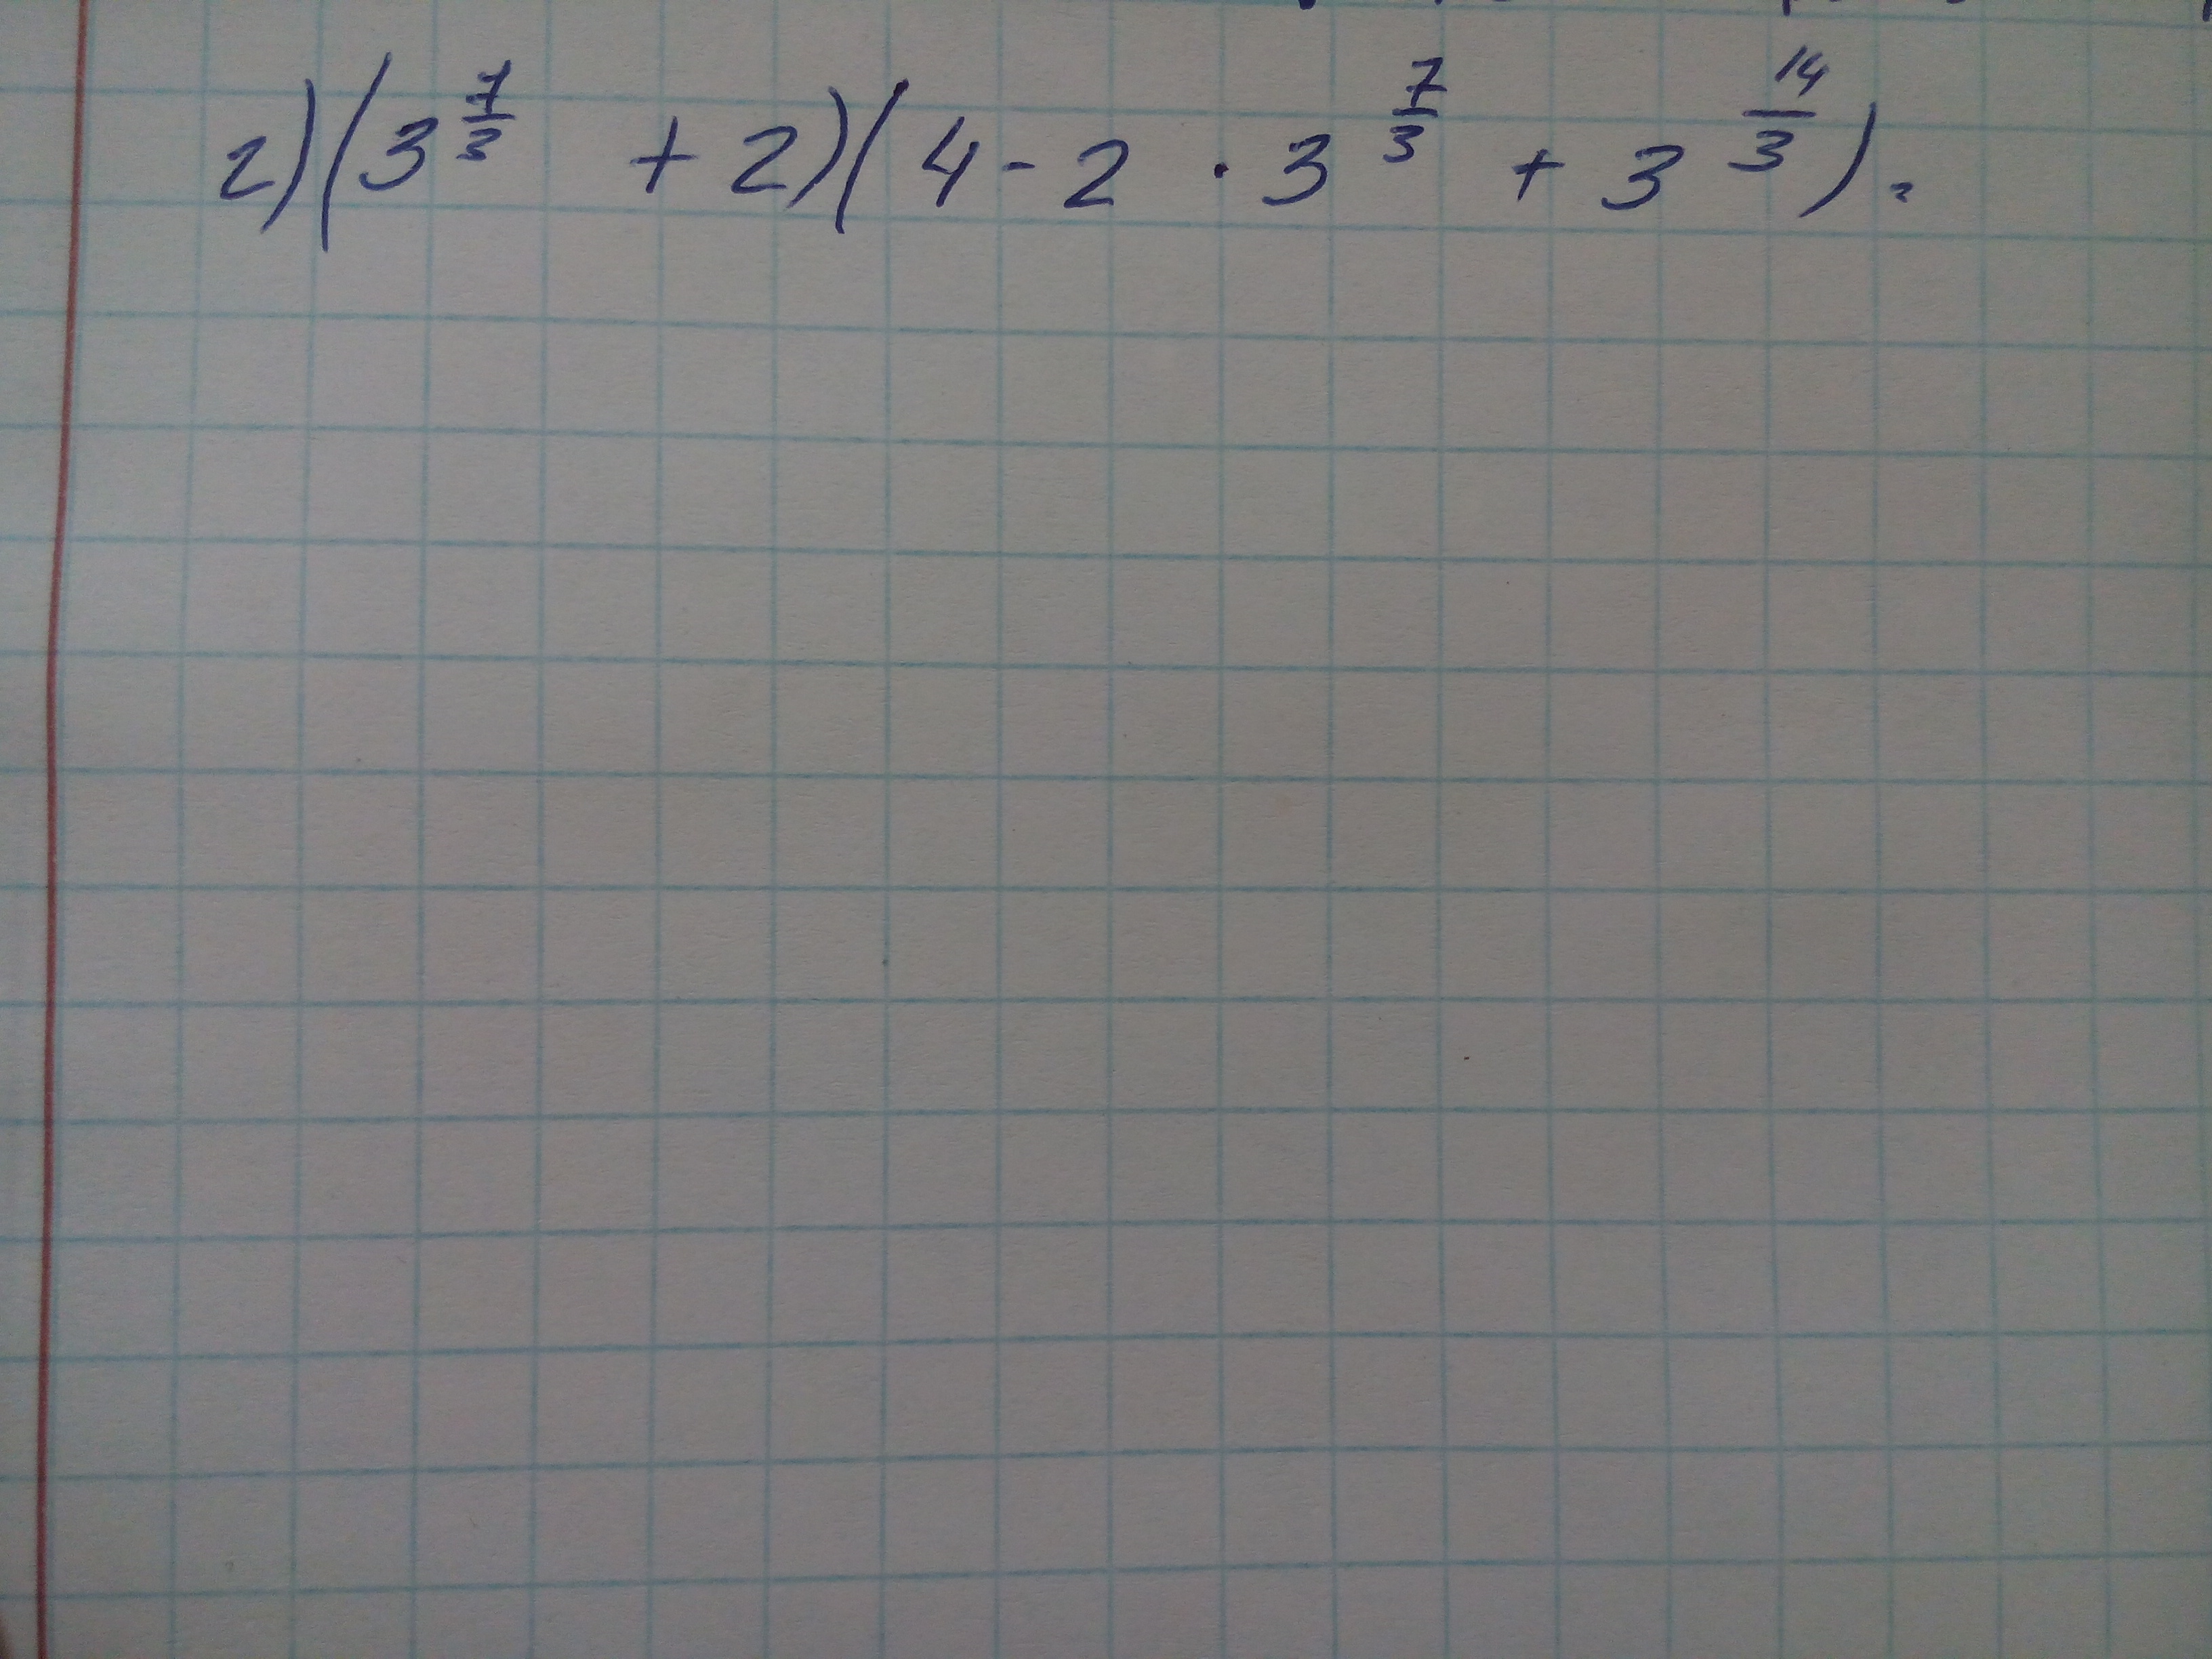 2) (3^{\frac{7}{3}} + 2)(4 - 2 · 3^{\frac{7}{3}} + 3^{\frac{14}{3}}) =